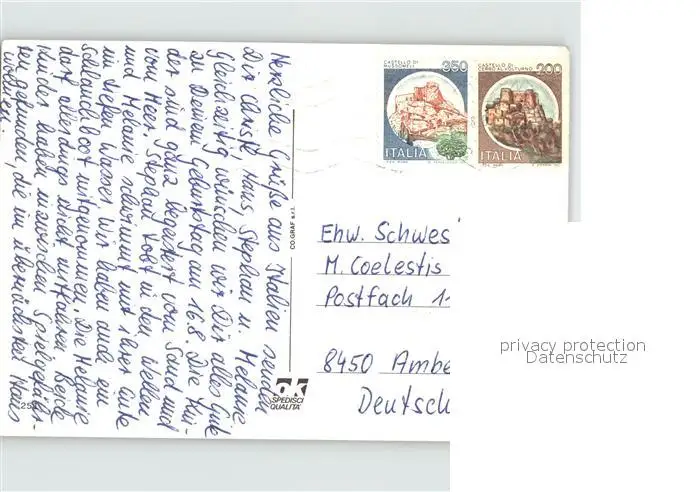 Herzliche Grüße aus Italien senden
Dir Christl, Hans, Stephan u. Melanie.
Gleichzeitig wünschen wir Dir alles Gute
zu Deinem Geburtstag am 16.8. Die Kin-
der sind ganz begeistert vom Sand und
vom Meer. Stephan tobt in den Wellen
und Melanie schwimmt mit ihrer Ente
im tiefen Wasser. Wir haben auch ein
Schlauchboot mitgenommen. Die Melanie
darf allerdings nicht mitfahren. Beide
Kinder haben inzwischen Spielgefähr-
ten gefunden, die im übernächsten Haus
wohnen.
CASTELLO DI
MUSSOMELI
350
ITALIA
CASTELLO DI
CERRO AL VOLTURNO
200
ITALIA
CO.GRAF s.r.l.
Ehw. Schwes
M. Coelestis
Postfach 1
8450 Ambe
Deutsch
ok
SPEDISCI
QUALITA'
25
privacy protection
Datenschutz